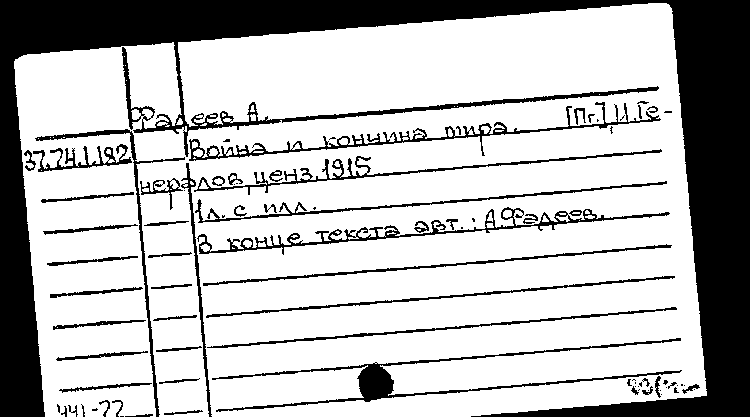 Фадеев, А.
37.74.1.192 Война и кончина мира. [Пг.], И. Ге-
нералов, ценз. 1915
1л. с илл.
В конце текста авт.: А.Фадеев.
441-77